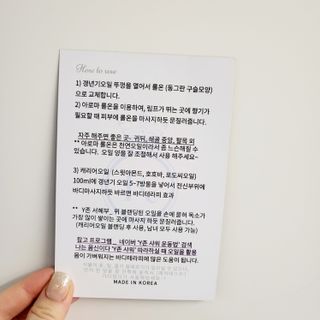 How to use
1) 갱년기오일 뚜껑을 열어서 롤온 (동그란 구슬모양)
으로 교체합니다.
2) 아로마 롤온을 이용하여, 림프가 뛰는 곳에 향기가
필요할 때 피부에 롤온을 마사지하듯 문질러줍니다.
자주 해주면 좋은 곳- 귀뒤, 쇄골 중앙, 팔목 외
** 아로마 롤온은 천연오일이라서 좀 느슨해질 수
있습니다. 오일 양을 잘 조절해서 사용 해주세요~
3) 캐리어오일 (스윗아몬드, 호호바, 로도씨오일)
100ml에 갱년기 오일 5-7방울을 넣어서 전신부위에
바디마사지하듯 바르면 바디테라피 효과
** Y존 서혜부_ 위 블랜딩된 오일을 손에 묻혀 독소가
가장 많이 쌓이는 곳에 마사지 하듯 문질러 줍니다.
(캐리어오일 블랜딩 후 사용, 남녀 모두 사용 가능)
참고 프로그램_ 네이버 'Y존 샤워 운동법' 검색
나는 몸신이다 'Y존 샤워' 따라하실 때 오일을 활용
몸이 가벼워지는 바디테라피에 많은 도움이 됩니다.
MADE IN KOREA